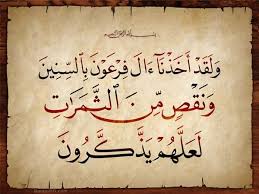 بسم الله الرحمن الرحيم
وَلَقَدْ أَخَذْنَآ ءَالَ فِرْعَوْنَ بِٱلسِّنِينَ
وَنَقْصٍ مِّنَ ٱلثَّمَرَٰتِ
لَعَلَّهُمْ يَذَّكَّرُونَ